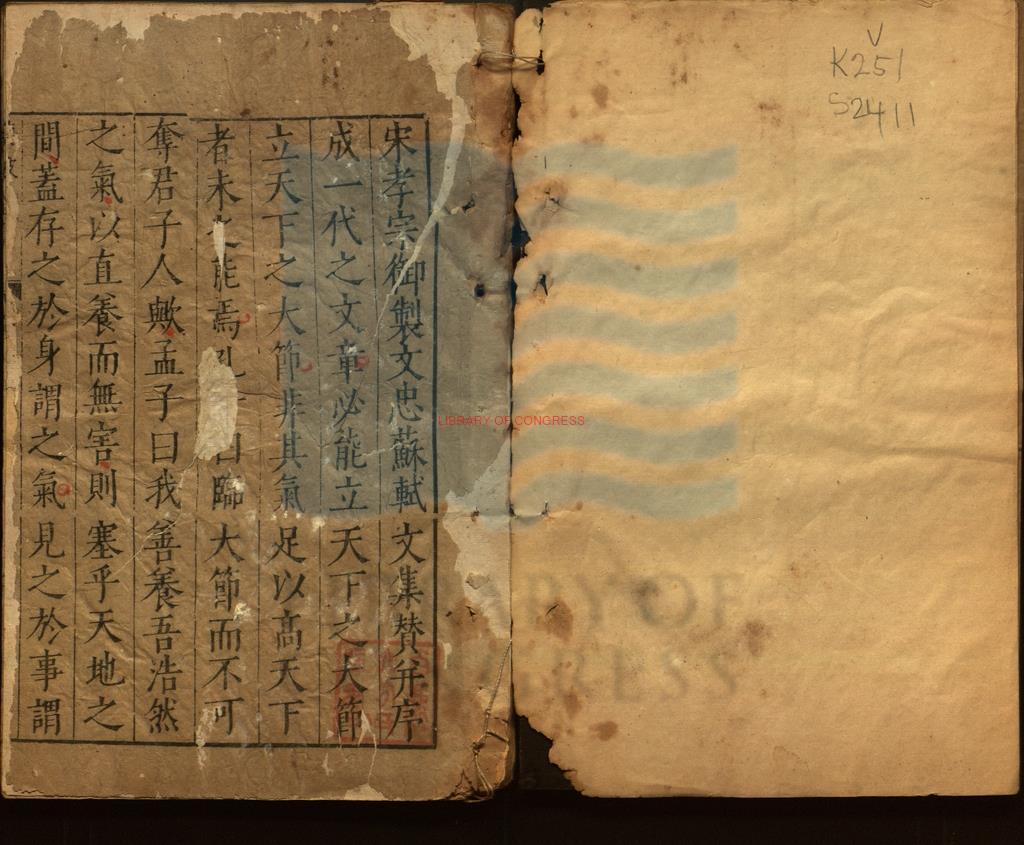 宋孝宗御製文忠蘇軾文集賛并序
成一代之文章必能立天下之大節
立天下之大節非其氣足以髙天下
者未之能焉孔子曰臨大節而不可
奪君子人歟孟子曰我善養吾浩然
之氣以直養而無害則塞乎天地之
間蓋存之於身謂之氣見之於事謂
V
K251
S2411
LIBRARY OF CONGRESS